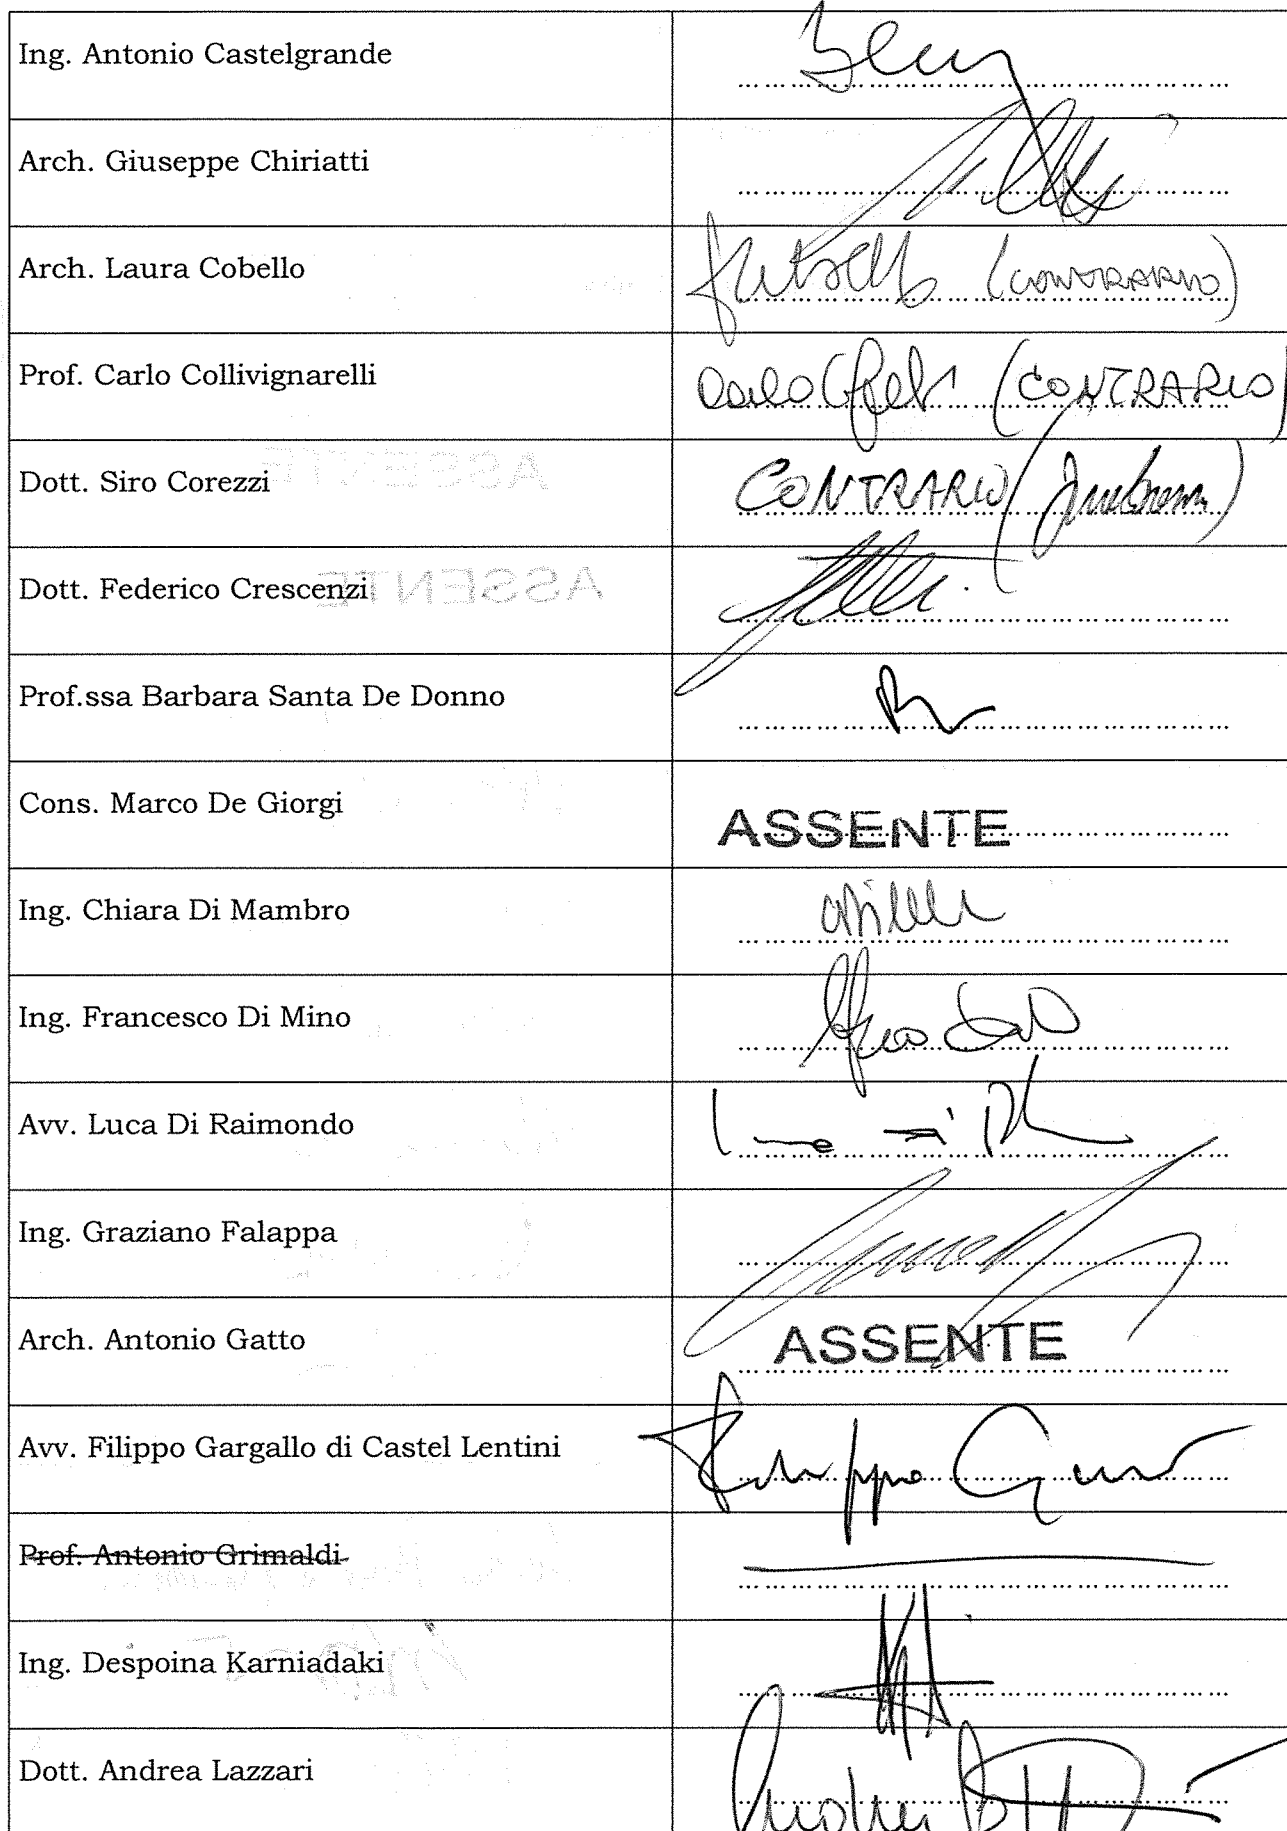 Ing. Antonio Castelgrande
Arch. Giuseppe Chiriatti
Arch. Laura Cobello (CONTRARIO)
Prof. Carlo Collivignarelli (CONTRARIO)
Dott. Siro Corezzi CONTRARIO
Dott. Federico Crescenzi
Prof.ssa Barbara Santa De Donno
Cons. Marco De Giorgi ASSENTE
Ing. Chiara Di Mambro
Ing. Francesco Di Mino
Avv. Luca Di Raimondo
Ing. Graziano Falappa
Arch. Antonio Gatto ASSENTE
Avv. Filippo Gargallo di Castel Lentini
Prof. Antonio Grimaldi
Ing. Despoina Karniadaki
Dott. Andrea Lazzari